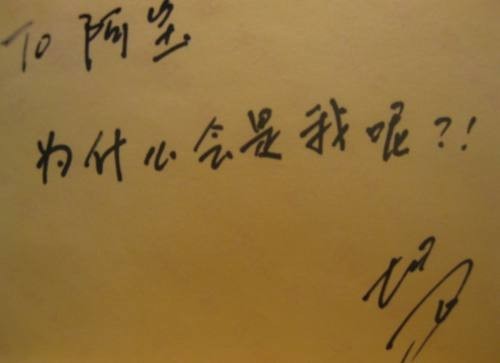 To 阿坚
为什么会是我呢?!